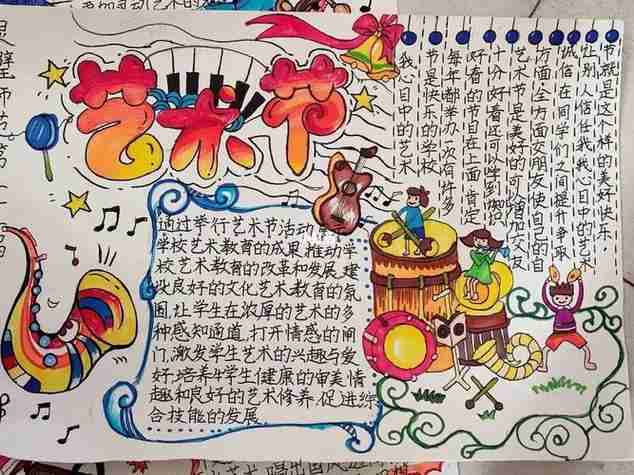 艺术节
通过举行艺术节活动
学校艺术教育的成果,推动学
校艺术教育的改革和发展,建
设良好的文化艺术教育的氛
围,让学生在浓厚的艺术的多
种感知通道,打开情感的闸
门,激发学生艺术的兴趣与爱
好,培养学生健康的审美情
趣和良好的艺术修养,促进综
合技能的发展
我心目中的艺术
节是快乐的学校
每年都举办一次有许多
好看的节目在上面肯定
十分好看还可以学到知识
艺术节是美好的可以增加交友
方面全方面交朋友使自己的自
诚信在同学们之间提升争取
让别人信任我我心目中的艺术
节就是这个样的美好快乐。